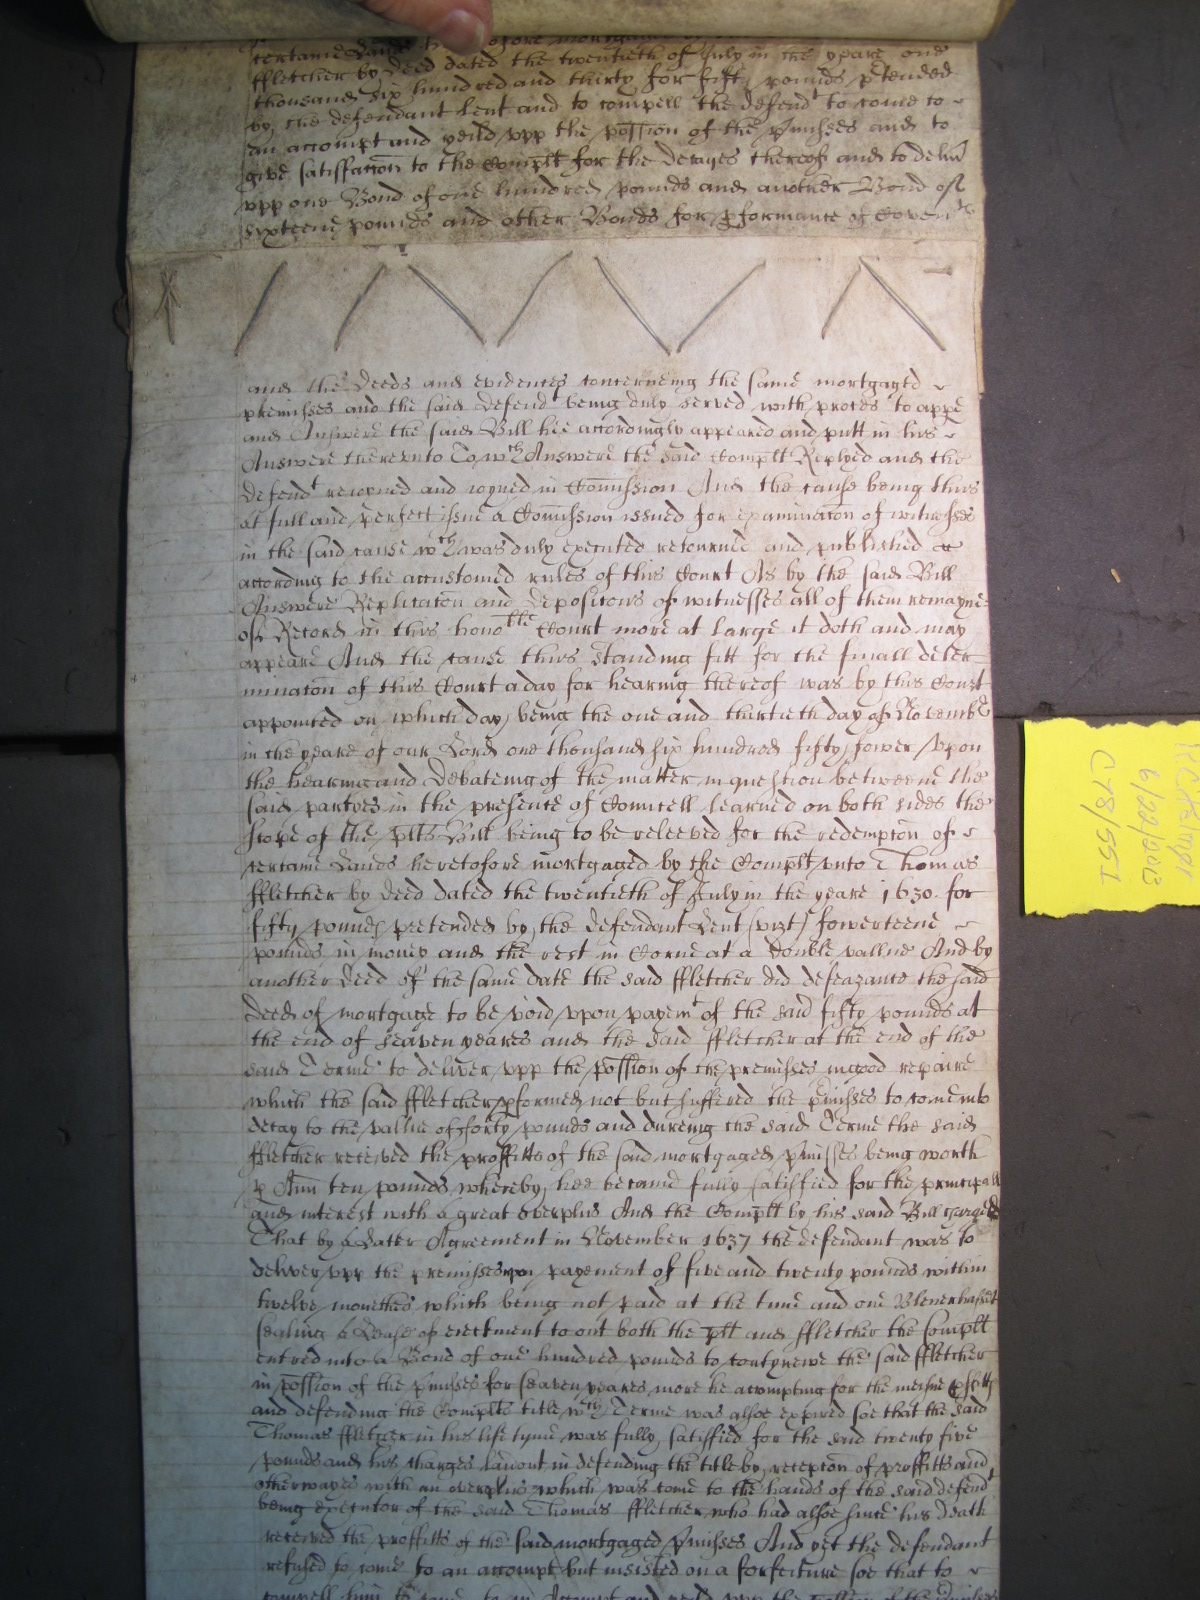 certaine Lands heretofore mortgaged
ffletcher by deed dated the twentieth of July in the yeare one
thousand six hundred and thirty for fifty pounds ptended
by the defendant lent and to compell the defendt to come to
an accompt and yeild vpp the possion of the pmisses and to
give satisfaccon to the Complt for the decayes thereof and to deliu
vpp one Bond of one hundred pounds and another Bond of
sixteene pounds and other Bonds for pformance of Covents
and the deeds and evidences concerneing the same mortgaged
premisses and the said defendt being duly served with proces to appe
and Answere the said Bill hee accordingly appeared and putt in his
Answere therevnto To wch Answere the said Complt Replyed and the
defendt reioyned and ioyned in Comission And the cause being thus
at full and perfect issue a Comission issued for examinacon of witnesses
in the said cause wch was duly executed retourned and published
according to the accustomed rules of this Court As by the said Bill
Answere Replicacon and deposicons of witnesses all of them remayne
of Record in this honoble Court more at large it doth and may
appeare And the cause thus standing fitt for the finall deter
minacon of this Court a day for hearing thereof was by this Court
appointed on which day being the one and thirtieth day of Novembr
in the yeare of our Lord one thousand six hundred fifty fower vpon
the hearing and debateing of the matter in question betweene the
said partyes in the presence of Councell learned on both sides the
scope of the plts Bill being to be releeved for the redempcon of
certaine Lands heretofore mortgaged by the Complt vnto Thomas
ffletcher by deed dated the twentieth of July in the yeare 1630 for
fifty pounds pretended by the defendant lent (vizt) fowerteene
pounds in money and the rest in Corne at a double vallue And by
another deed of the same date the said ffletcher did defeazance the said
deed of mortgage to be void vpon paymt of the said fifty pounds at
the end of seaven yeares and the said ffletcher at the end of the
said Terme to deliver vpp the possion of the premisses in good repaire
which the said ffletcher pformed not but suffered the pmisses to come into
decay to the vallue of forty pounds and dureing the said Terme the said
ffletcher received the proffitts of the said mortgaged pmisses being worth
p Ann ten pounds whereby hee became fully satisfied for the principall
and interest with a great overplus And the Complt by his said Bill
That by a Later Agreement in November 1637 the defendant was to
deliver vpp the premisses vpon payement of five and twenty pounds within
twelve monethes which being not paid at the time and one Blenerhasset
sealing a Lease of eiectment to out both the plt and ffletcher the Complt
entred into a Bond of one hundred pounds to contynewe the said ffletcher
in possion of the pmisses for seaven yeares more he accompting for the meane pfitts
and defending the Complts title wch Terme was alsoe expired soe that the said
Thomas ffletcher in his life tyme was fully satisfied for the said twenty five
pounds and his charges laid out in defending the title by recepcon of proffitts and
otherwayes with an overplus which was come to the hands of the said defendt
being executor of the said Thomas ffletcher who had alsoe since his death
received the proffitts of the said mortgaged pmisses And yet the defendant
refused to come to an accompt but insisted on a forfeiture soe that to
compell him to come to an Accompt and yeild vpp the possion of the pmisses
6/22/2013
C78/551